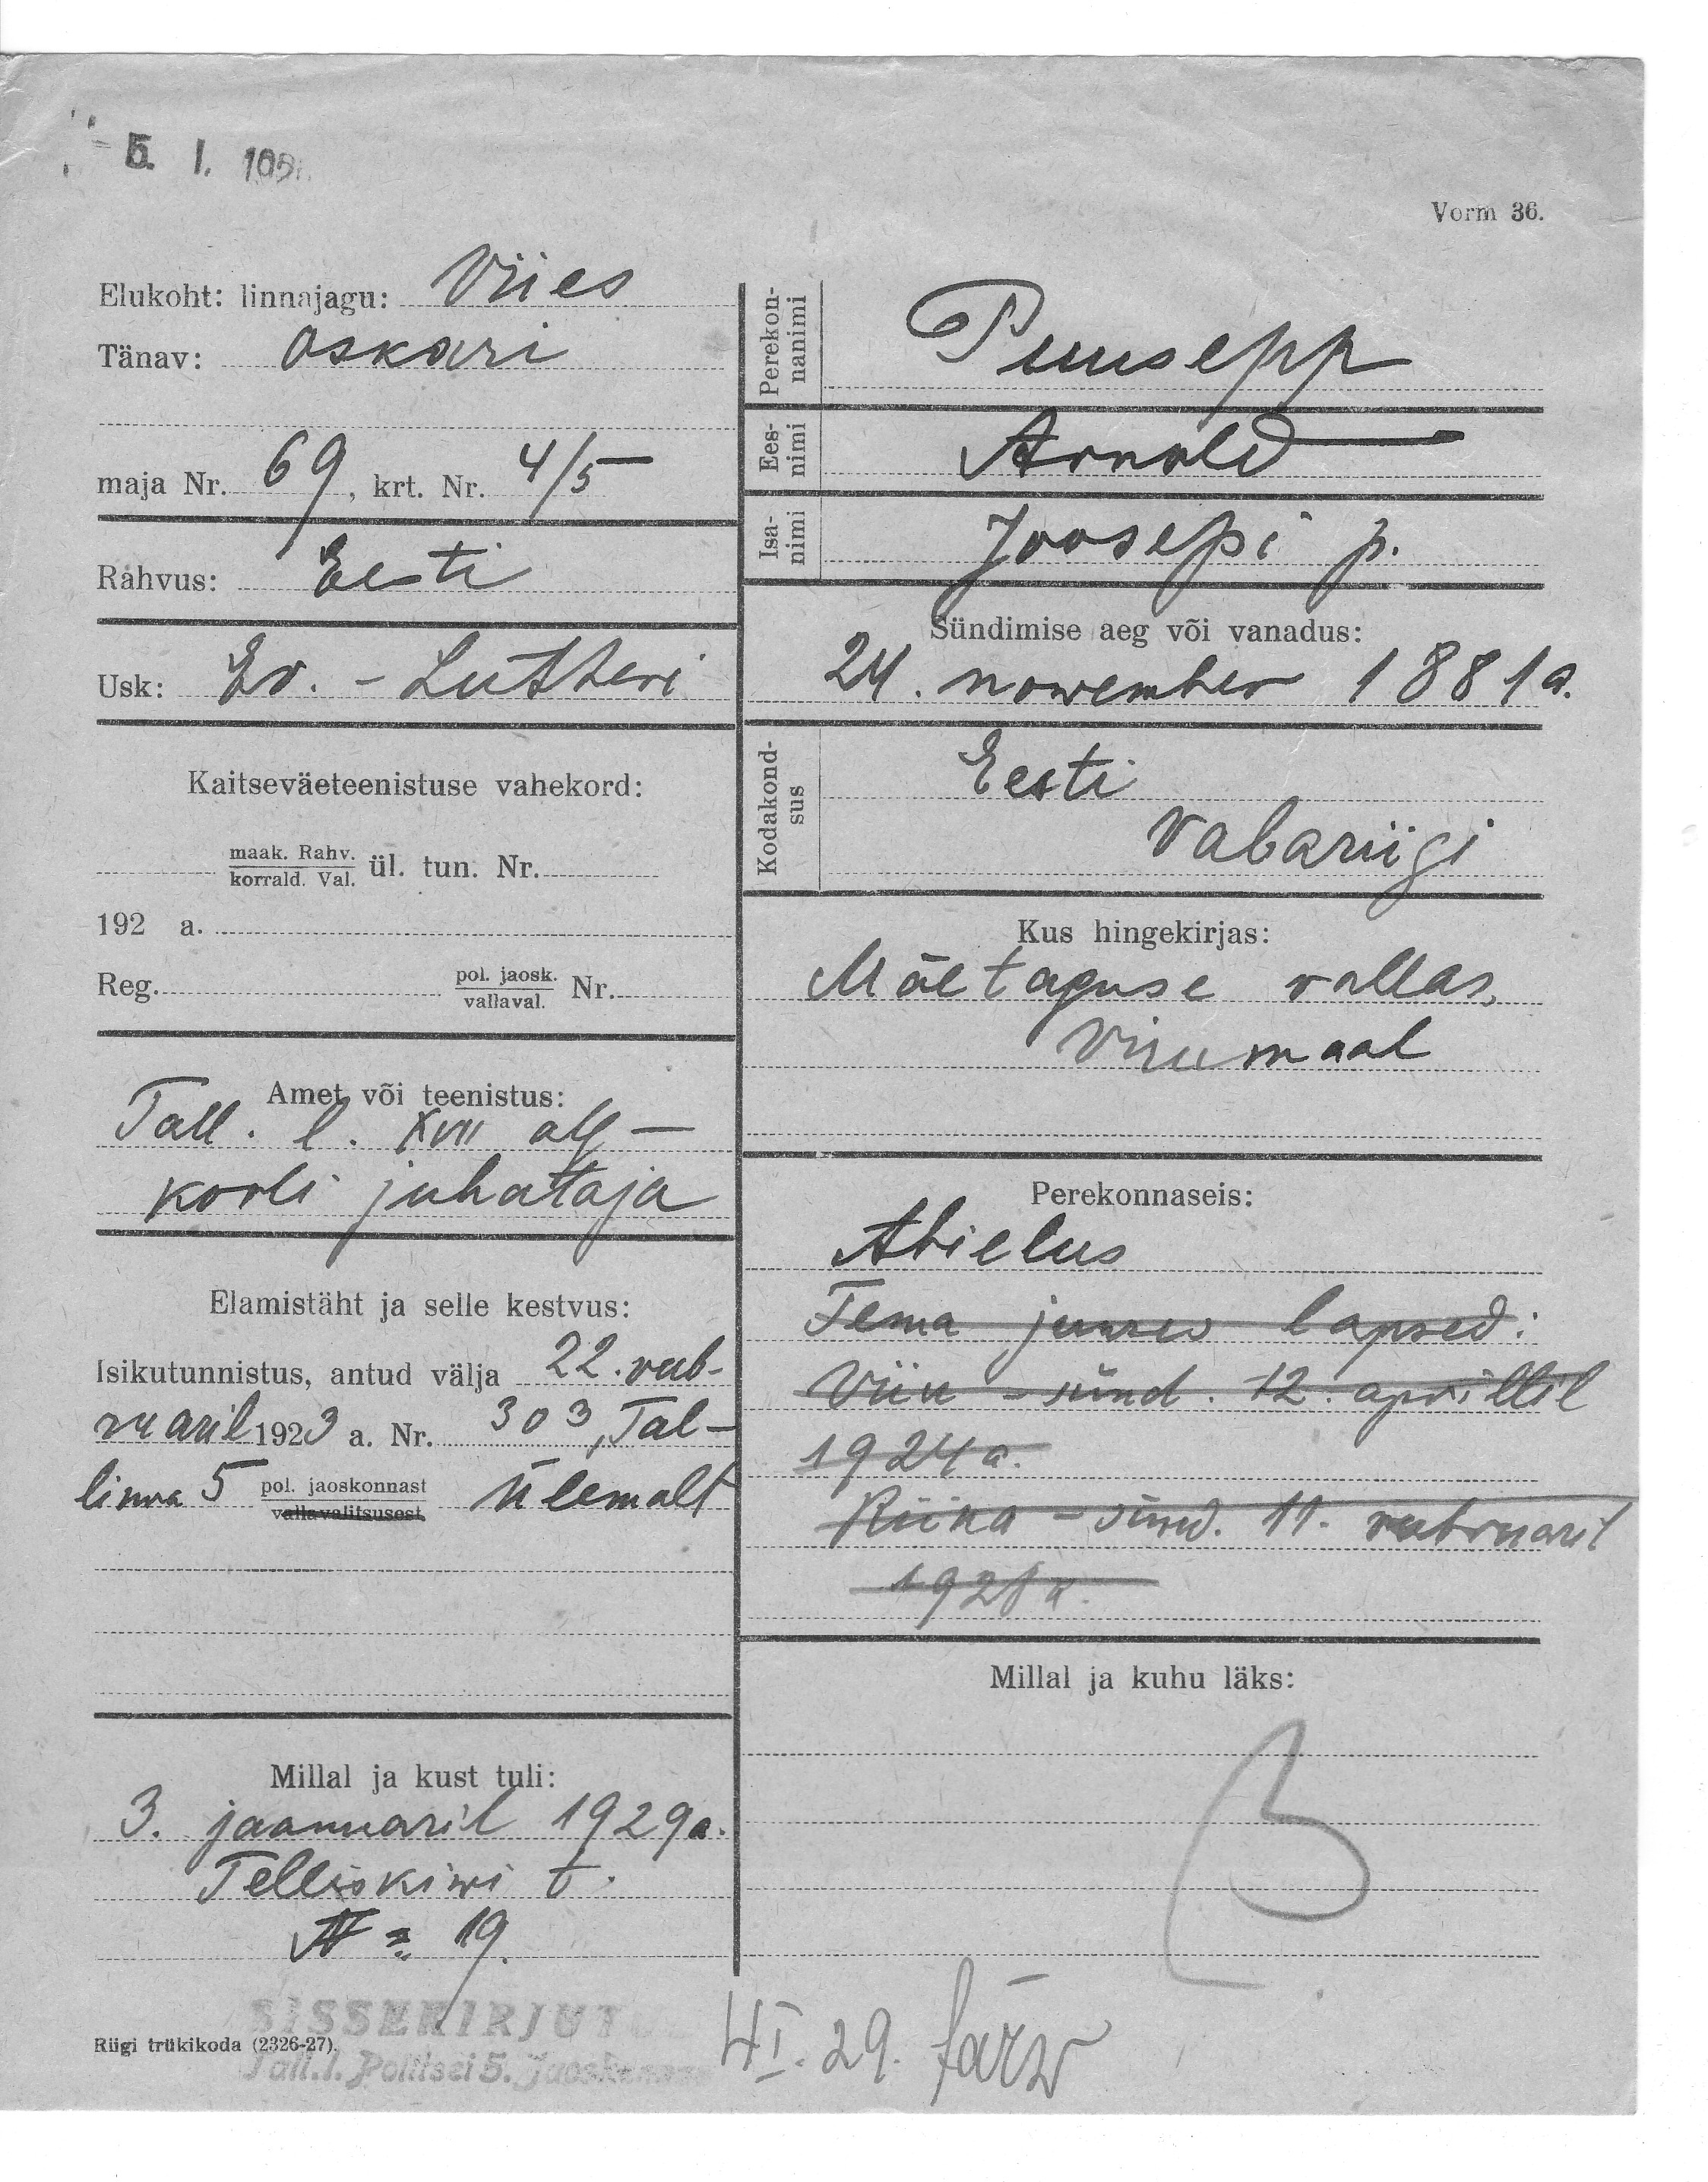 5. I.
Vorm 36.
Elukoht: linnajagu: Viies
Tänav: Oskari
maja Nr. 69, krt. Nr. 4/5
Rahvus: Eesti
Usk: Ev. - Lutheri
Kaitseväeteenistuse vahekord:
maak. Rahv.
korrald. Val. ül. tun. Nr.
192 a.
Reg. pol. jaosk.
vallaval. Nr.
Amet või teenistus:
Tall. l. XVII alg-
kooli juhataja
Elamistäht ja selle kestvus:
Isikutunnistus, antud välja 22. veeb-
ruaril 1923 a. Nr. 303, Tal-
linna 5 pol. jaoskonnast
vallavalitsusest ülemalt
Millal ja kust tuli:
3. jaanuaril 1929 a.
Telliskiwi t.
N= 19.
Perekon-
nanimi
Puusepp
Ees-
nimi
Arnold
Isa-
nimi
Joosepi p.
Sündimise aeg või vanadus:
24. nowember 1881 a.
Kodakond-
sus
Eesti
vabariigi
Kus hingekirjas:
Mäetaguse vallas,
Virumaal
Perekonnaseis:
Abielus
Tema juures lapsed:
Viiu - sünd. 12. aprillil
1924 a.
Riina - sünd. 11. veebruaril
Millal ja kuhu läks:
SISSEKIRJUT
Riigi trükikoda (2326-27).
Tall. l. Politsei 5. Jaoskonnas
4 I. 29.